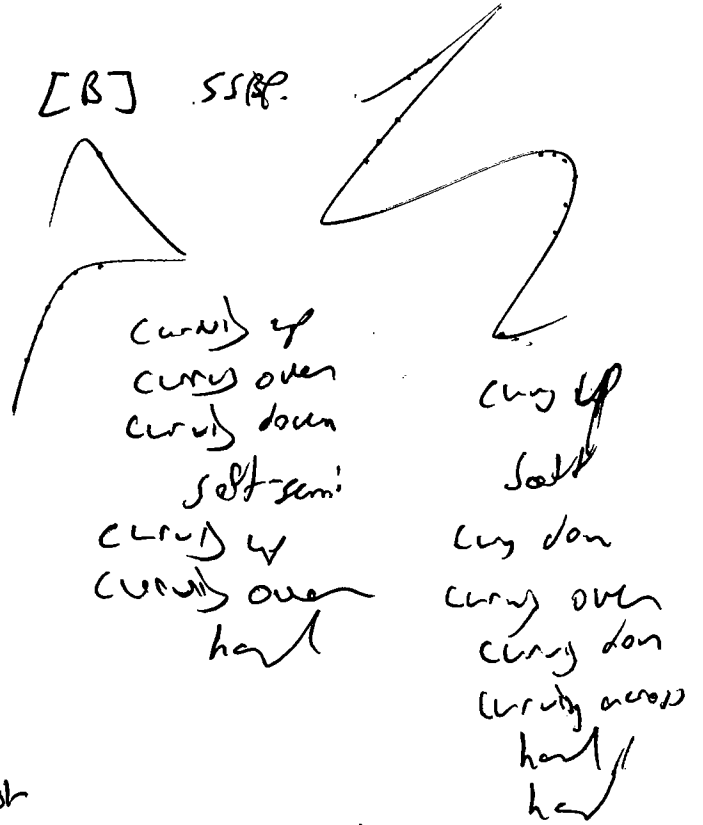 [B] SSBP.
curving up
curving over
curving down
soft-semi
curving up
curving over
hard
curvg up
soft
cuvg down
curving over
curving down
curving across
hard
hard